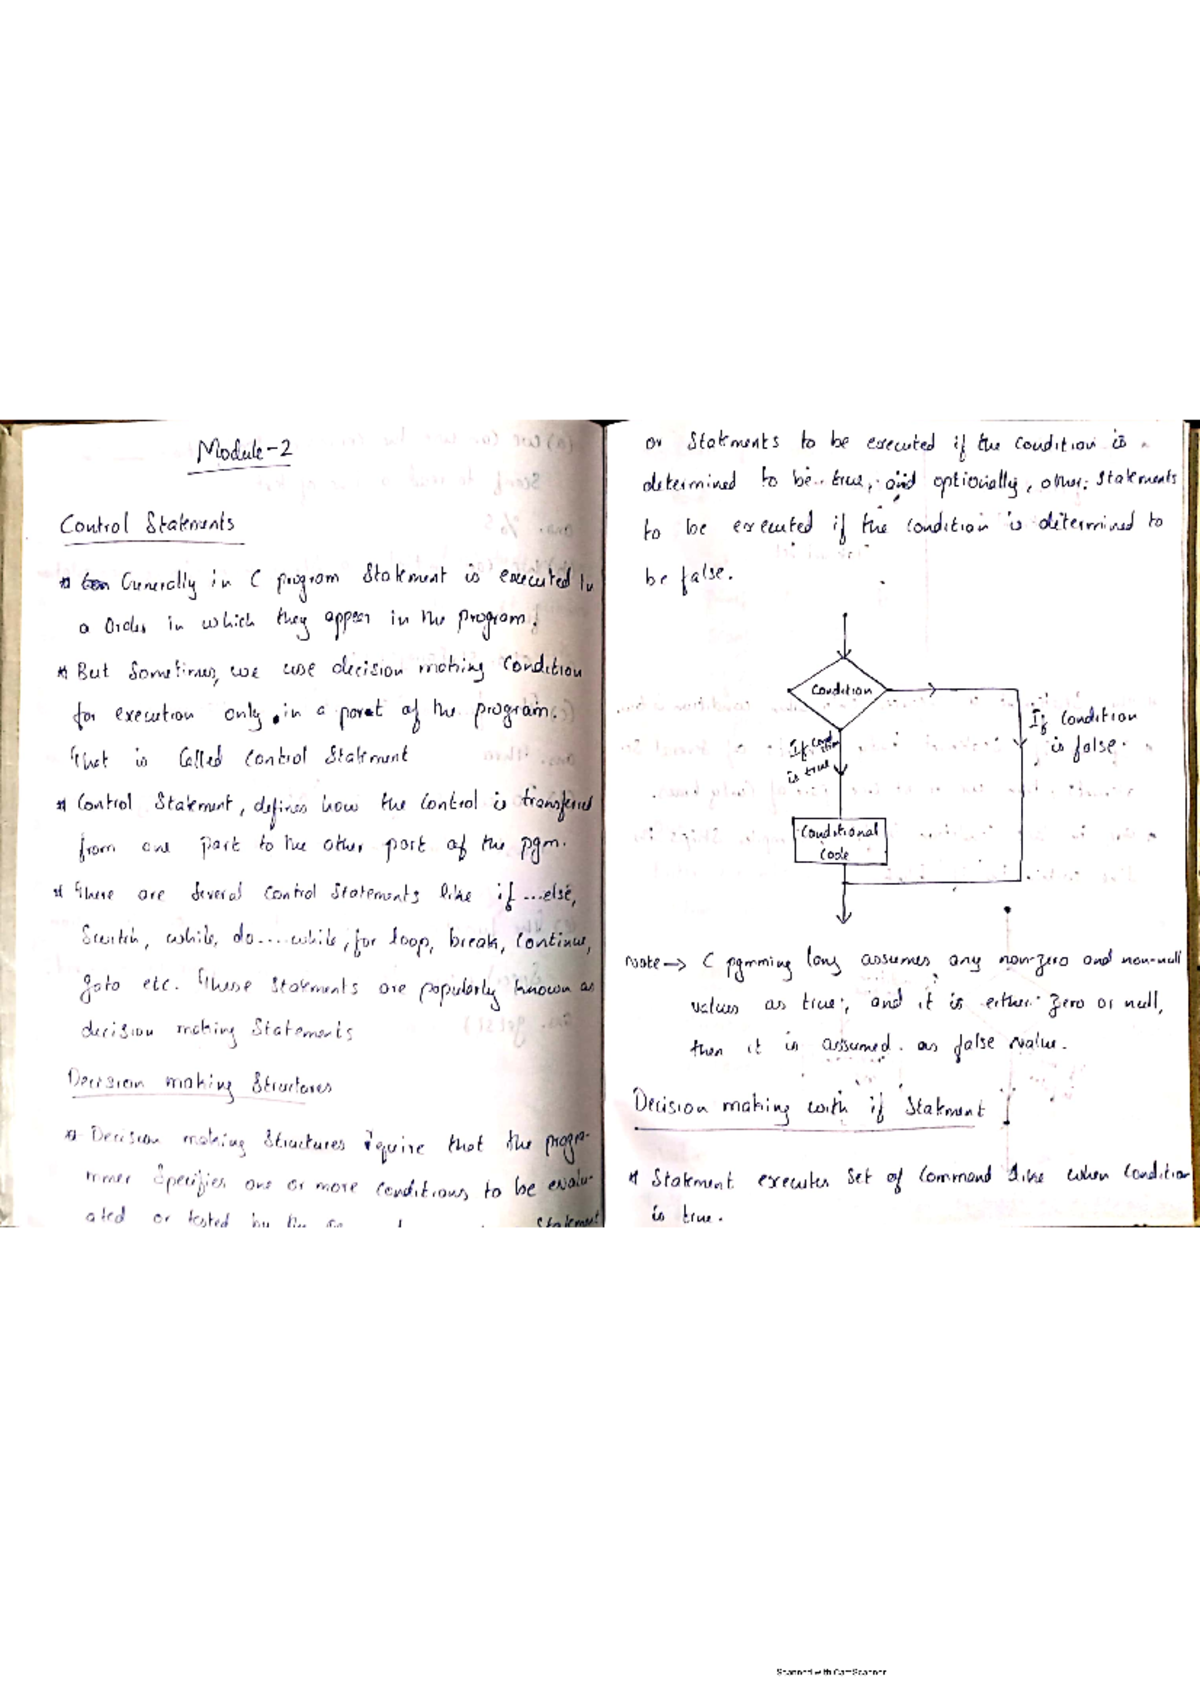 Module-2
Control Statements
Generally in C program Statement is executed in
a Order in which they appear in the program.
But Sometimes, we use decision making Condition
for execution only in a part of the program.
That is Called Control Statement
Control Statement, defines how the Control is transferred
from one part to the other part of the pgm.
There are Several Control Statements like if ...else,
Switch, while, do....while, for loop, break, Continue,
goto etc. These Statements are popularly known as
decision making Statements
Decision making Structures
Decision making Structures require that the progra-
mmer Specifies one or more Conditions to be evalu-
ated or tested by the Statement
or Statements to be executed if the Condition is
determined to be true, and optionally, other Statements
to be executed if the Condition is determined to
be false.
Condition
If Condition
is false.
If Condition
is true
Conditional
Code
Note → C pgmming lang assumes any non-zero and non-null
values as true, and it is either zero or null,
then it is assumed as false value.
Decision making with if Statement
Statement executes Set of Command line when Condition
is true.
Scanned with CamScanner